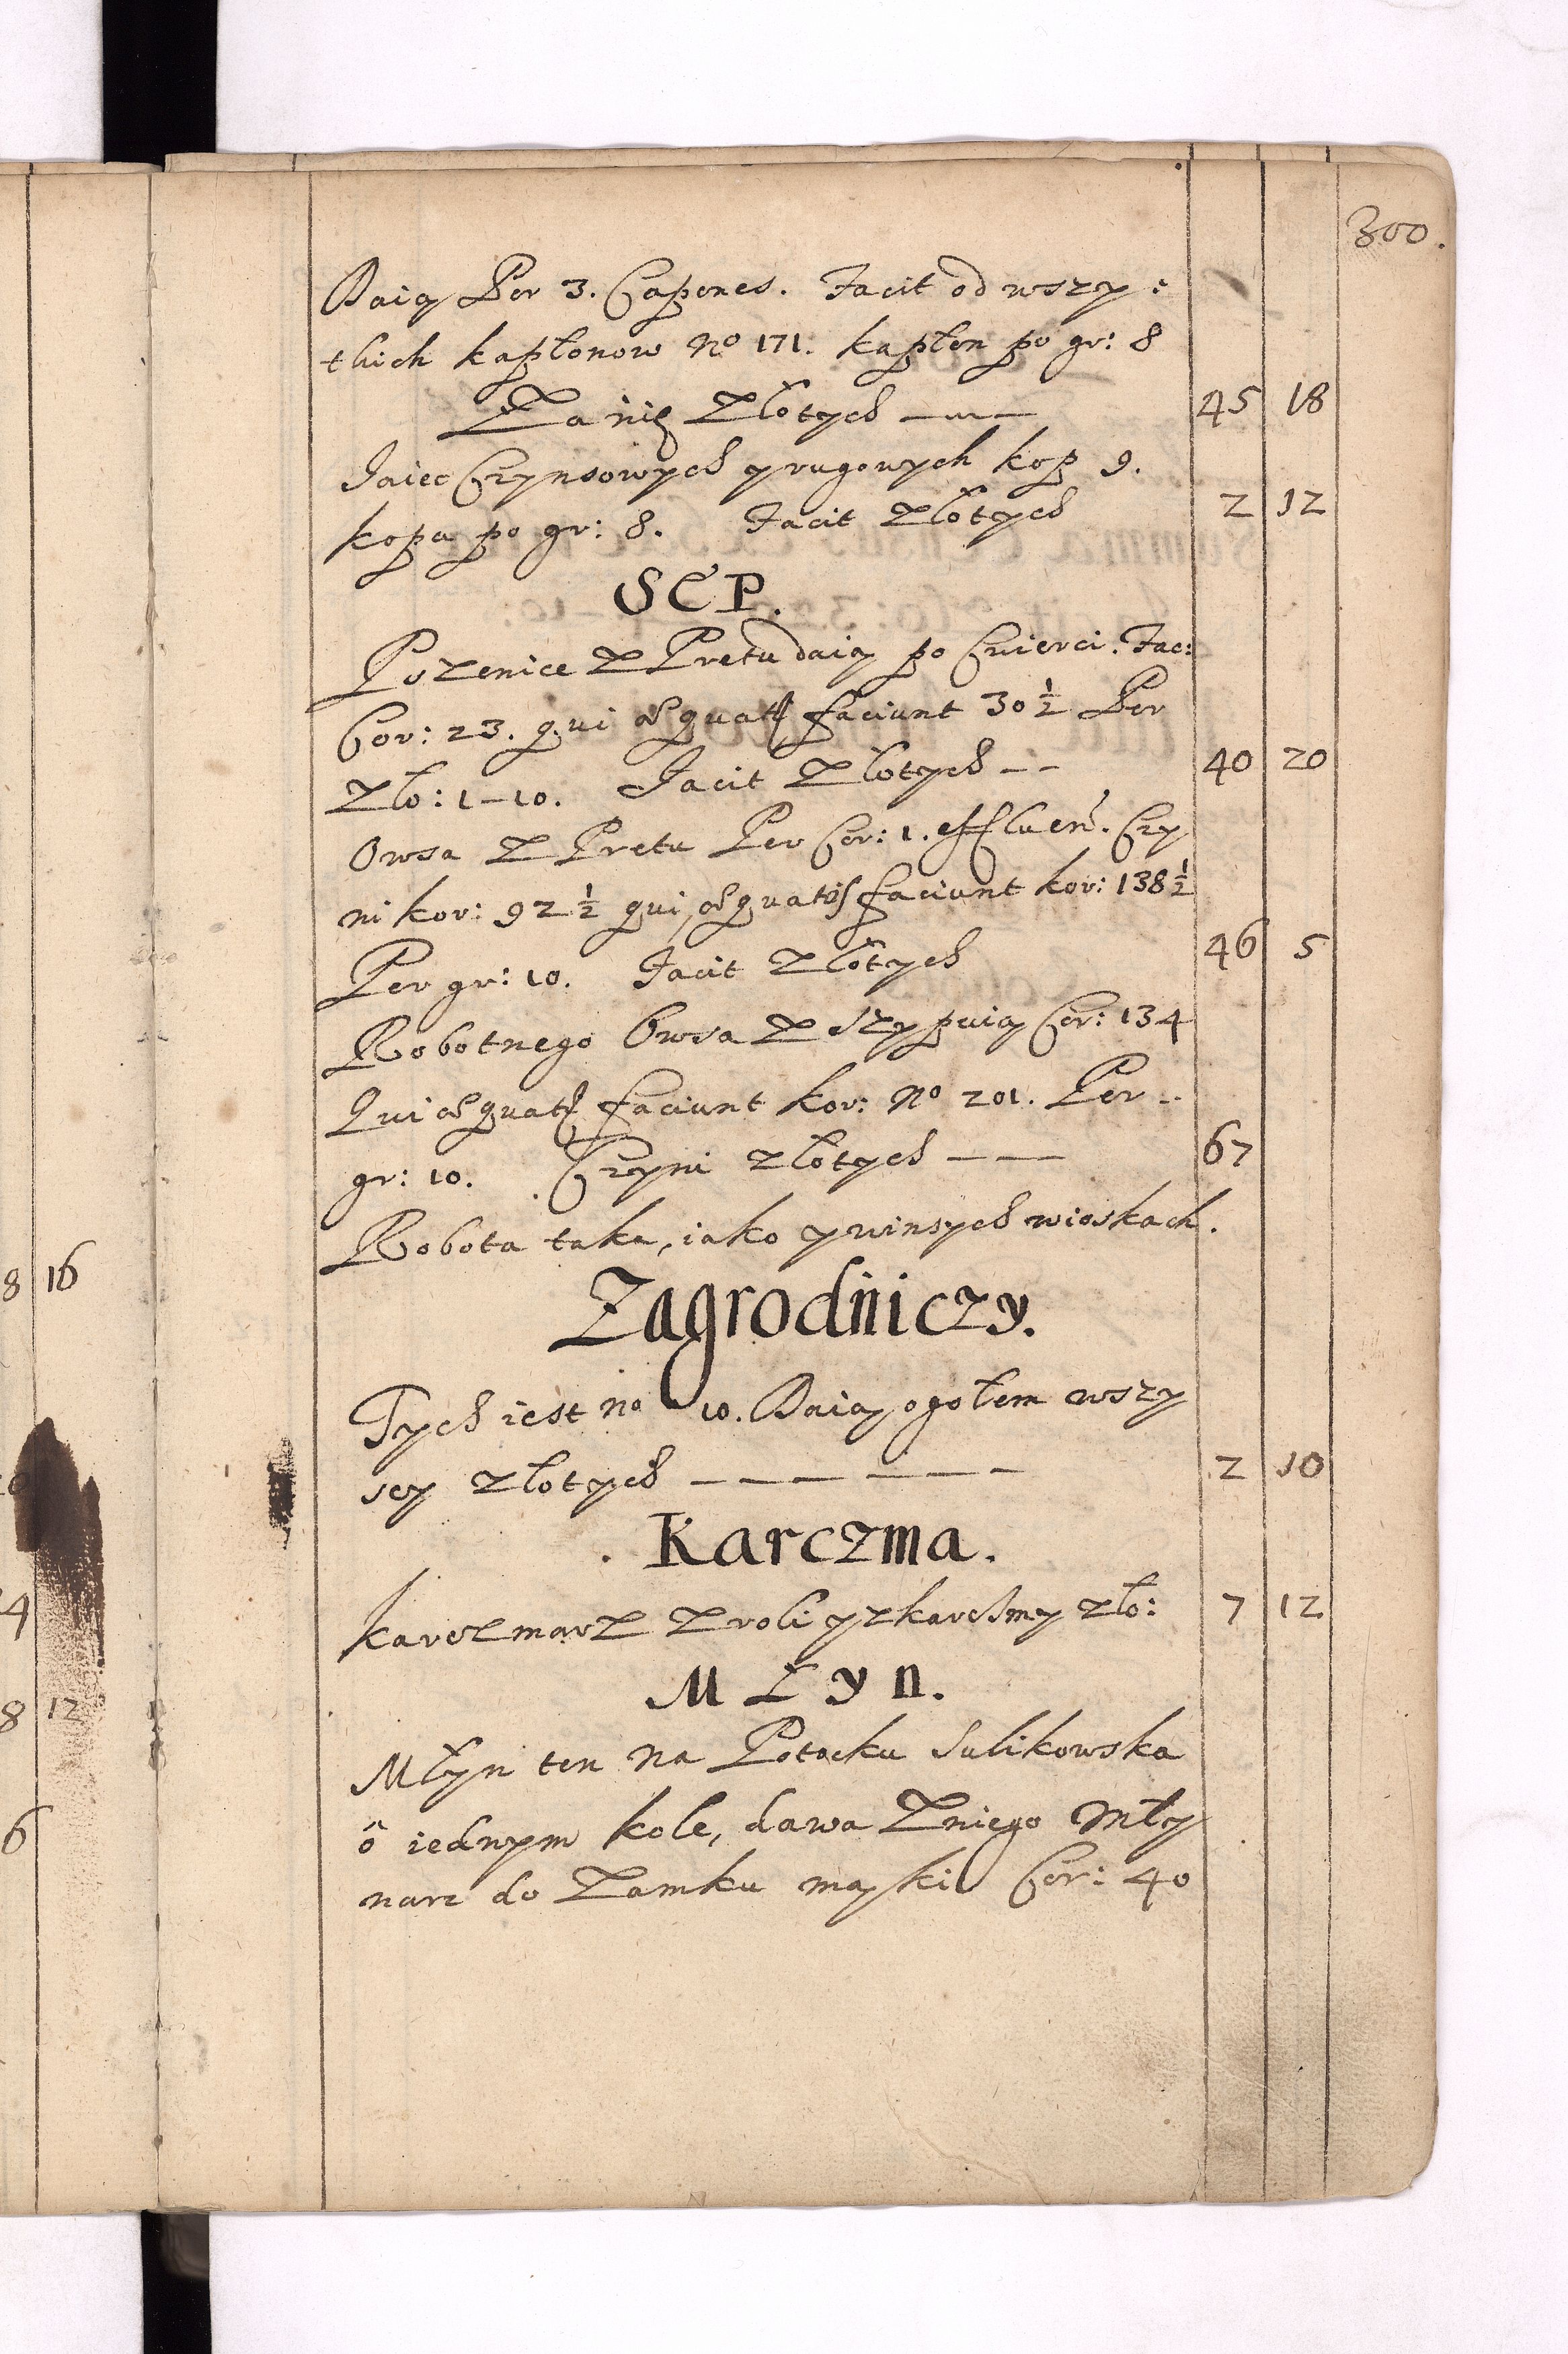 300.
Daią Per 3. Capones. Facit od wszy:
tkich kapłonow No 171. kapłon po gr: 8
Za nie Złotych — 45 18
Jaiec Czynsowych y rugowych kop 9.
kopa po gr: 8. Facit złotych 2 12
SEP.
Pszenice z Prętu daią po Cwierci. Fac:
Cor: 23. qui aequatis faciunt 30 1/2 Per
Zło: 1–10. Facit Złotych — 40 20
Owsa z Prętu Per Cor: 1. Czy
ni kor: 92 1/2 qui aequatis faciunt kor: 138 1/2
Per gr: 10. Facit złotych 46 5
Robotnego Owsa Zsszypuią Cor: 134
Qui aequatis faciunt kor: No 201. Per
gr: 10. Czyni złotych — 67
Robota taka, iako y winsych wioskach.
Zagrodniczy.
Tych iest no 10. Daią ogołem wszy
scy złotych — 2 10
Karczma.
Karczmarz z roli y zkarczmy zło: 7 12
MŁyn.
Młyn ten na Potocku Sulikowska
ô iednym kole, dawa Zniego Mły
narz do Zamku mąki Cor: 40
8 16
4
8 12
6